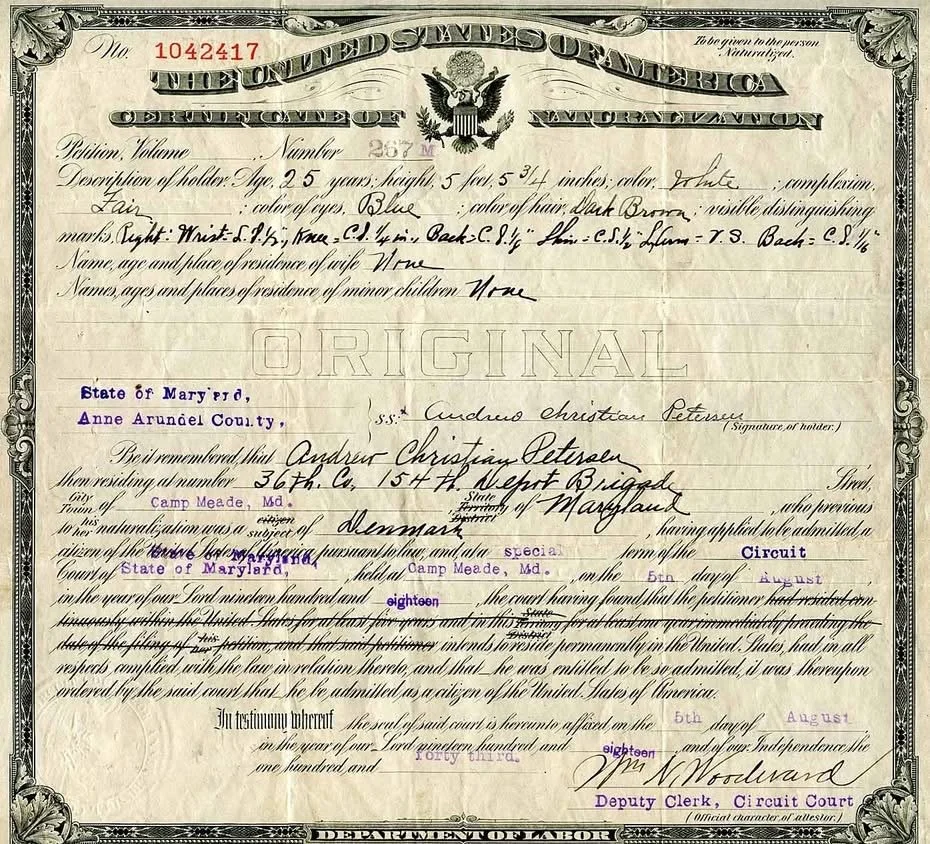 No. 1042417
To be given to the person Naturalized.
THE UNITED STATES OF AMERICA
CERTIFICATE OF NATURALIZATION
Petition, Volume Number 267 M
Description of holder. Age, 25 years; height, 5 feet, 5 3/4 inches; color, White ; complexion,
Fair ; color of eyes, Blue ; color of hair, Dark Brown ; visible distinguishing
marks, Right: Wrist Knee = C.S. 1/4 in., Back = C.S. Back = C.S. 1/6"
Name, age and place of residence of wife None
Names, ages and places of residence of minor children None
ORIGINAL
State of Maryland,
Anne Arundel County, } ss: Andrew Christian Petersen
(Signature of holder.)
Be it remembered, that Andrew Christian Petersen
then residing at number 36th. Co, 154th. Depot Brigade Street,
City Town of Camp Meade, Md. , State Territory District of Maryland , who previous
to his her naturalization was a citizen subject of Denmark , having applied to be admitted a
citizen of the United States of America, pursuant to law, and at a special term of the Circuit
State of Maryland,
Court of State of Maryland, held at Camp Meade, Md. on the 5th day of August
in the year of our Lord nineteen hundred and eighteen , the court having found that the petitioner had resided con-
tinuously within the United States for at least five years and in this State Territory District for at least one year immediately preceding the
date of the filing of his her petition, and that said petitioner intends to reside permanently in the United States, had in all
respects complied with the law in relation thereto, and that he was entitled to be so admitted, it was thereupon
ordered by the said court that he be admitted as a citizen of the United States of America.
In testimony whereof the seal of said court is hereunto affixed on the 5th day of August
in the year of our Lord nineteen hundred and eighteen , and of our Independence the
one hundred and forty third.
Wm N. Woodward
Deputy Clerk, Circuit Court
(Official character of attestor.)
DEPARTMENT OF LABOR